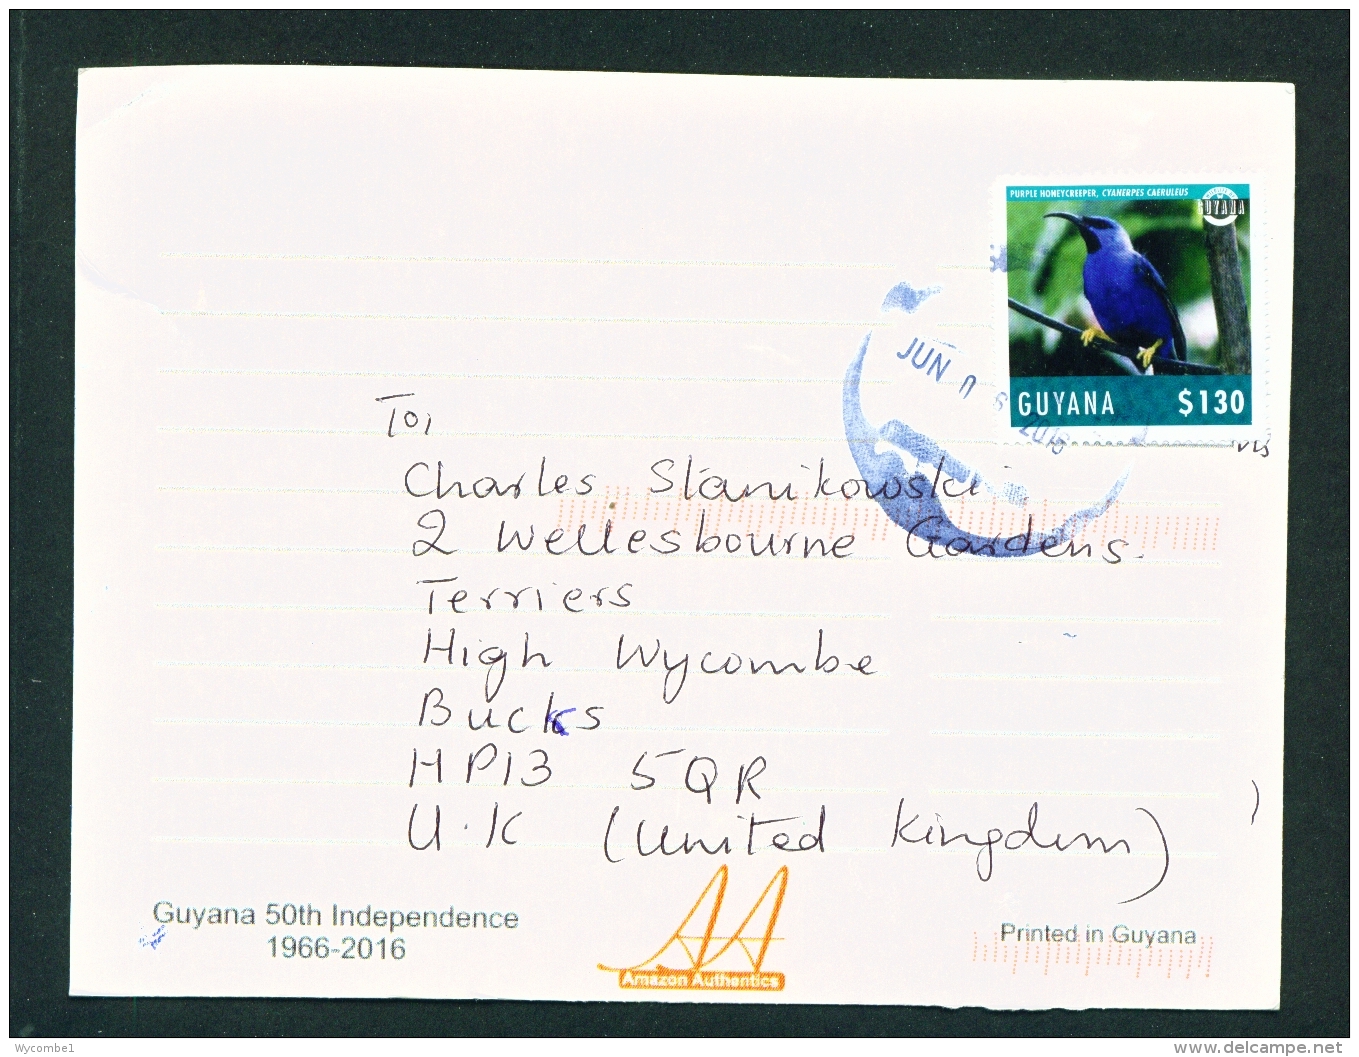 PURPLE HONEYCREEPER, CYANERPES CAERULEUS
GUYANA
GUYANA $130
JUN 0 6 2016
To,
Charles Stanikowski
2 Wellesbourne Gardens.
Terriers
High Wycombe
Bucks
HP13 5QR
U.K (United Kingdom)
Guyana 50th Independence
1966-2016
AA
Amazon Authentics
Printed in Guyana
Wycombe1
www.delcampe.net